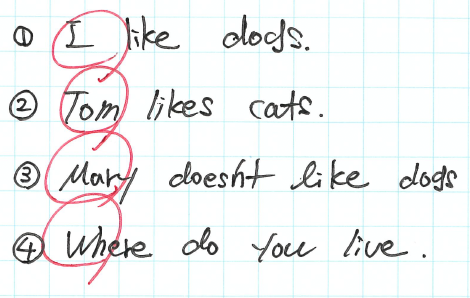 ① I like dogs.
② Tom likes cats.
③ Mary doesn't like dogs
④ Where do you live.